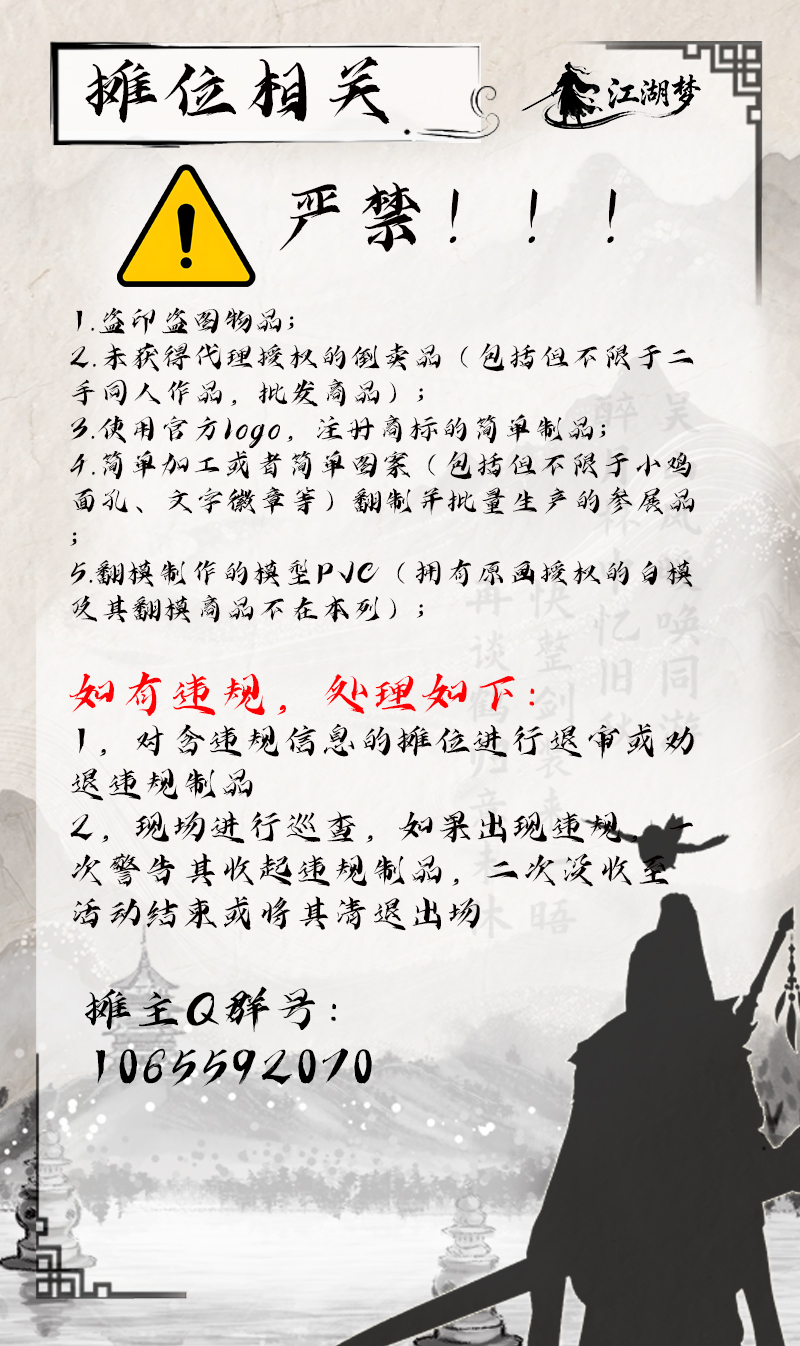 摊位相关
江湖梦
严禁！！！
1.盗印盗图物品；
2.未获得代理授权的倒卖品（包括但不限于二
手同人作品，批发商品）；
3.使用官方logo，注册商标的简单制品；
4.简单加工或者简单图案（包括但不限于小鸡
面孔、文字徽章等）翻制并批量生产的参展品
；
5.翻模制作的模型PVC（拥有原画授权的白模
及其翻模商品不在本列）；
如有违规，处理如下：
1，对含违规信息的摊位进行退审或劝
退违规制品
2，现场进行巡查，如果出现违规，一
次警告其收起违规制品，二次没收至
活动结束或将其清退出场
摊主Q群号：
1065592070